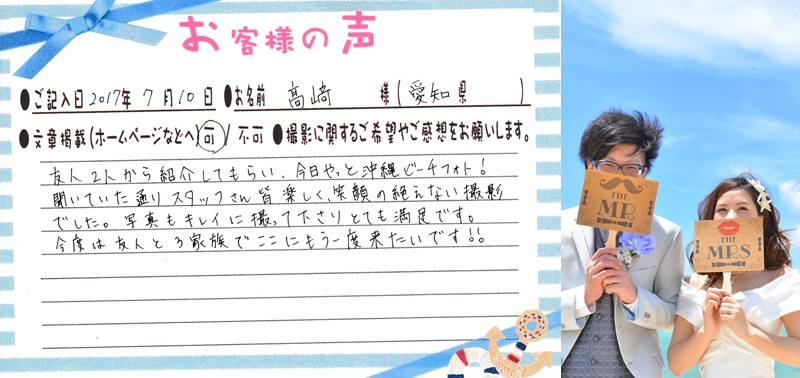 お客様の声
●ご記入日 2017年 7月 10日 ●お名前 高﨑 様(愛知県 )
●文章掲載(ホームページなどへ)可 / 不可 ●撮影に関するご希望やご感想をお願いします。
友人2人から紹介してもらい、今日やっと沖縄ビーチフォト!
聞いていた通りスタッフさん皆楽しく、笑顔の絶えない撮影
でした。写真もキレイに撮って下さりとても満足です。
今度は友人と3家族でここにもう一度来たいです!!
THE
MR
THE
MRS